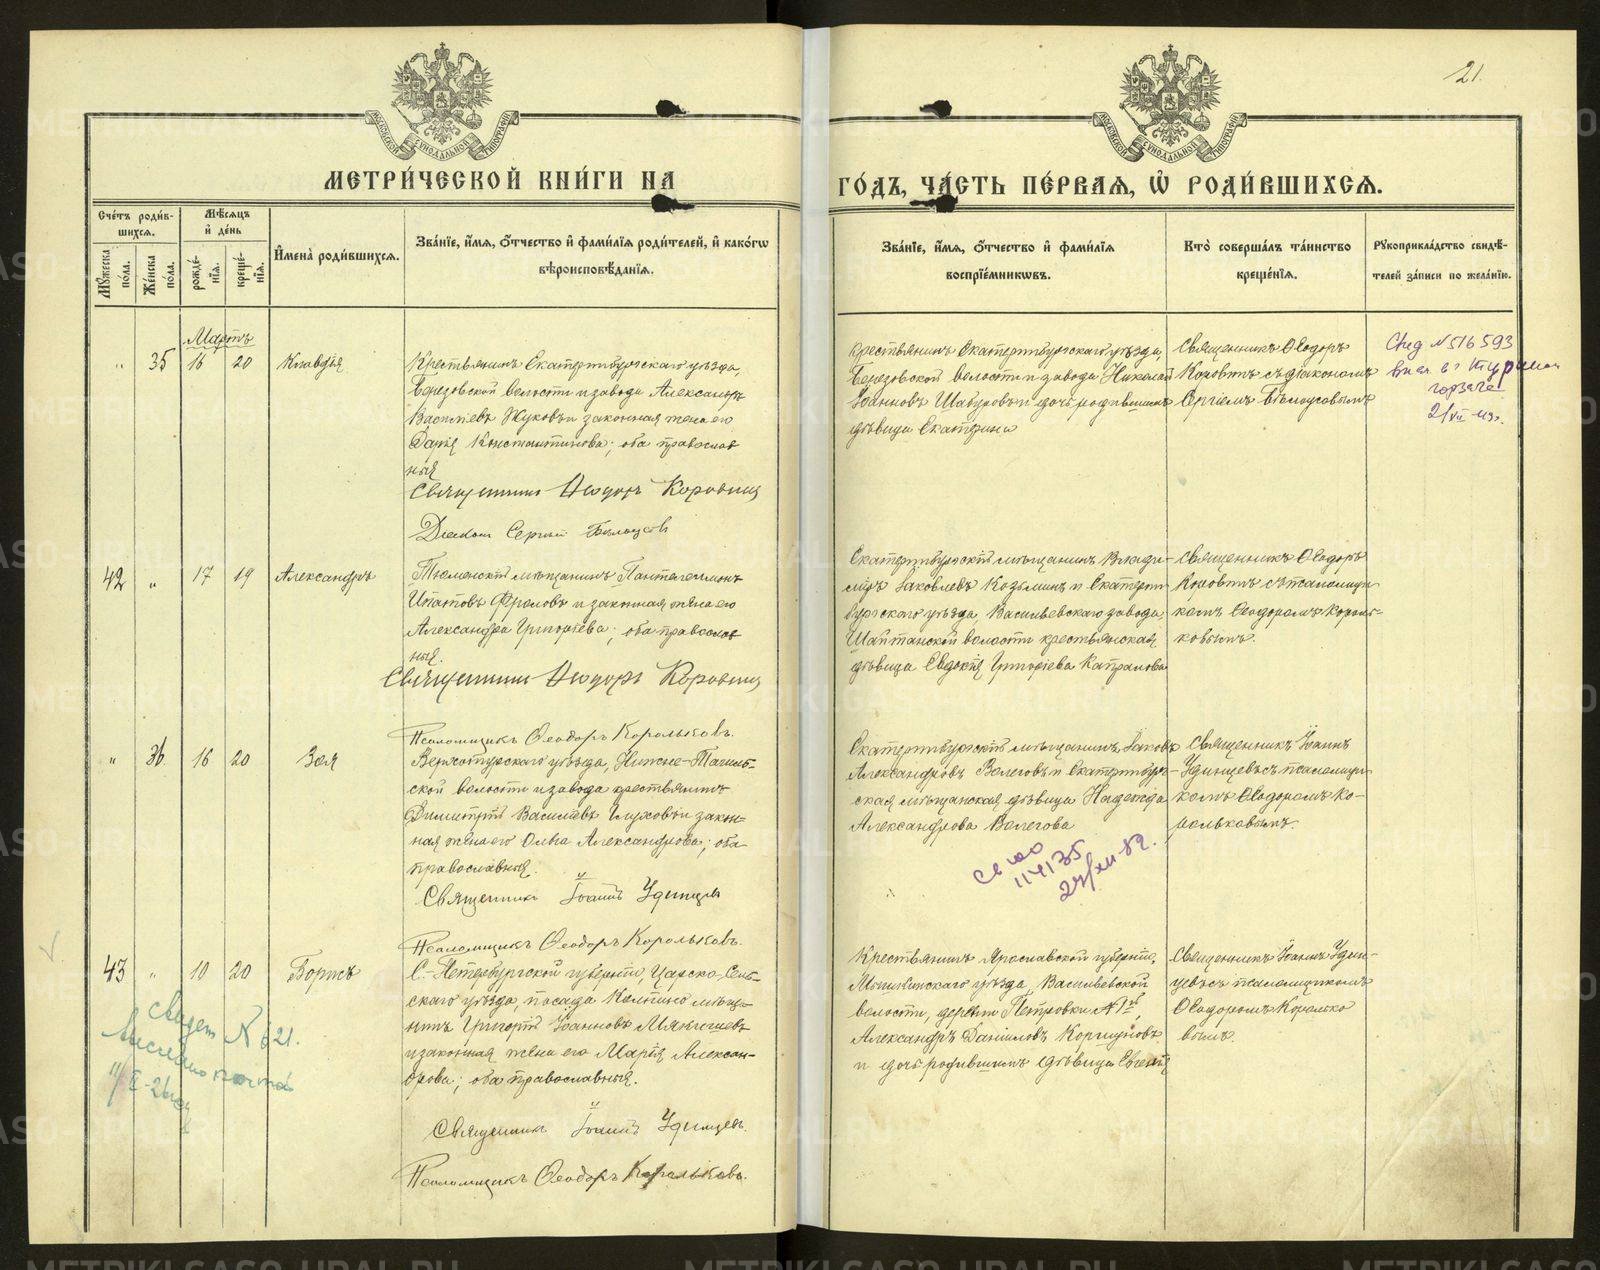 21.
МЕТРИ́ЧЕСКОЙ КНИ́ГИ НА
ГО́ДЪ, ЧА́СТЬ ПЕ́РВАѦ, Ѡ҆ РОДИ́ВШИХСѦ.
Сче́тъ роди́в-
шихсѧ.
Мѣ́сѧцъ
и҆ де́нь
И҆мена̀ роди́вшихсѧ.
Зва́нїе, и҆́мѧ, ѻ҆́тчество и҆ фами́лїѧ роди́телей, и҆ како́гѡ
вѣроисповѣ́данїѧ.
Мꙋ́жеска по́ла.
Же́нска по́ла.
рожде́нїѧ.
креще́нїѧ.
Зва́нїе, и҆́мѧ, ѻ҆́тчество и҆ фами́лїѧ
воспрїе́мникѡвъ.
Кто̀ соверша́лъ та́инство
креще́нїѧ.
Рꙋкоприкла́дство свидѣ́-
телей за́писи по жела́нїю.
Мартъ
" 35 16 20 Клавдія
Крестьянинъ Екатеринбургскаго уѣзда,
Березовской волости и завода Александръ
Василіевъ Жуковъ и законная жена его
Дарія Константинова; оба православ
ныя
Священникъ Ѳеодоръ Коровинъ
Діаконъ Сергій Бѣлоусовъ
Крестьянинъ Екатеринбургскаго уѣзда,
Березовской волости и завода Николай
Іоанновъ Шабуровъ и дочь родившихъ
дѣвица Екатерина
Священникъ Ѳеодоръ
Коровинъ съ діакономъ
Сергіемъ Бѣлоусовымъ
Свид N 516593
21/VII-43г.
42 " 17 19 Александръ
Тюменскій мѣщанинъ Пантелеимонъ
Ипатовъ Фроловъ и законная жена его
Александра Григоріева; оба православ
ныя.
Священникъ Ѳеодоръ Коровинъ
Псаломщикъ Ѳеодоръ Корольковъ.
Екатеринбургскій мѣщанинъ Влади-
міръ Іаковлевъ Козьминъ и Екатерин
бургскаго уѣзда, Васильевскаго завода,
Шайтанской волости крестьянская
дѣвица Евдокія Григоріева Капралова
Священникъ Ѳеодоръ
Коровинъ съ псаломщи-
комъ Ѳеодоромъ Король-
ковымъ.
" 36. 16 20 Зоя
Верхотурскаго уѣзда, Нижне-Тагиль-
ской волости и завода крестьянинъ
Димитрій Василіевъ Глуховъ и закон-
ная жена его Ольга Александрова; оба
православныя.
Священникъ Іоаннъ Удинцевъ
Псаломщикъ Ѳеодоръ Корольковъ.
Екатеринбургскій мѣщанинъ Іаковъ
Александровъ Волеговъ и Екатеринбург-
ская мѣщанская дѣвица Надежда
Александрова Волегова
Священникъ Іоаннъ
Удинцевъ съ псаломщи-
комъ Ѳеодоромъ Ко-
рольковымъ.
114135
43 " 10 20 Борисъ
С.-Петербургской губерніи, Царско-Сель-
скаго уѣзда, посада Колпино мѣща-
нинъ Григорій Іоанновъ
и законная жена его Марія Алексан-
дрова; оба православныя.
Священникъ Іоаннъ Удинцевъ.
Псаломщикъ Ѳеодоръ Корольковъ.
Крестьянинъ Ярославской губерніи,
Мышкинскаго уѣзда, Васильевской
волости, деревни Петровки № 1й,
Александръ Даніиловъ Коршуновъ
и дочь родившихъ дѣвица Евгенія
Священникъ Іоаннъ Удин-
цевъ съ псаломщикомъ
Ѳеодоромъ Королько
вымъ.
свидет N 621.
выслано почтой
METRIKI.GASO-URAL.RU